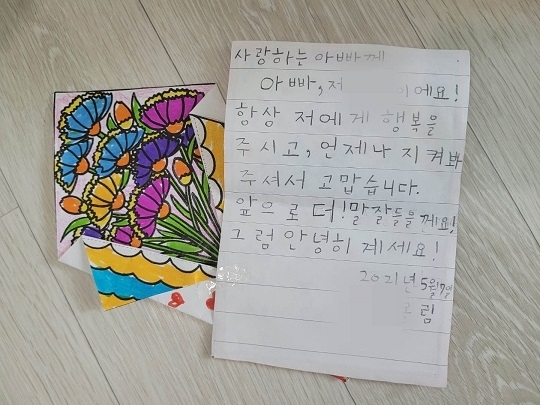 사랑하는 아빠께
아빠, 저 이에요!
항상 저에게 행복을
주시고, 언제나 지켜봐
주셔서 고맙습니다.
앞으로 더! 말 잘 들을께요!
그럼 안녕히 계세요!
2021년 5월 7일
림